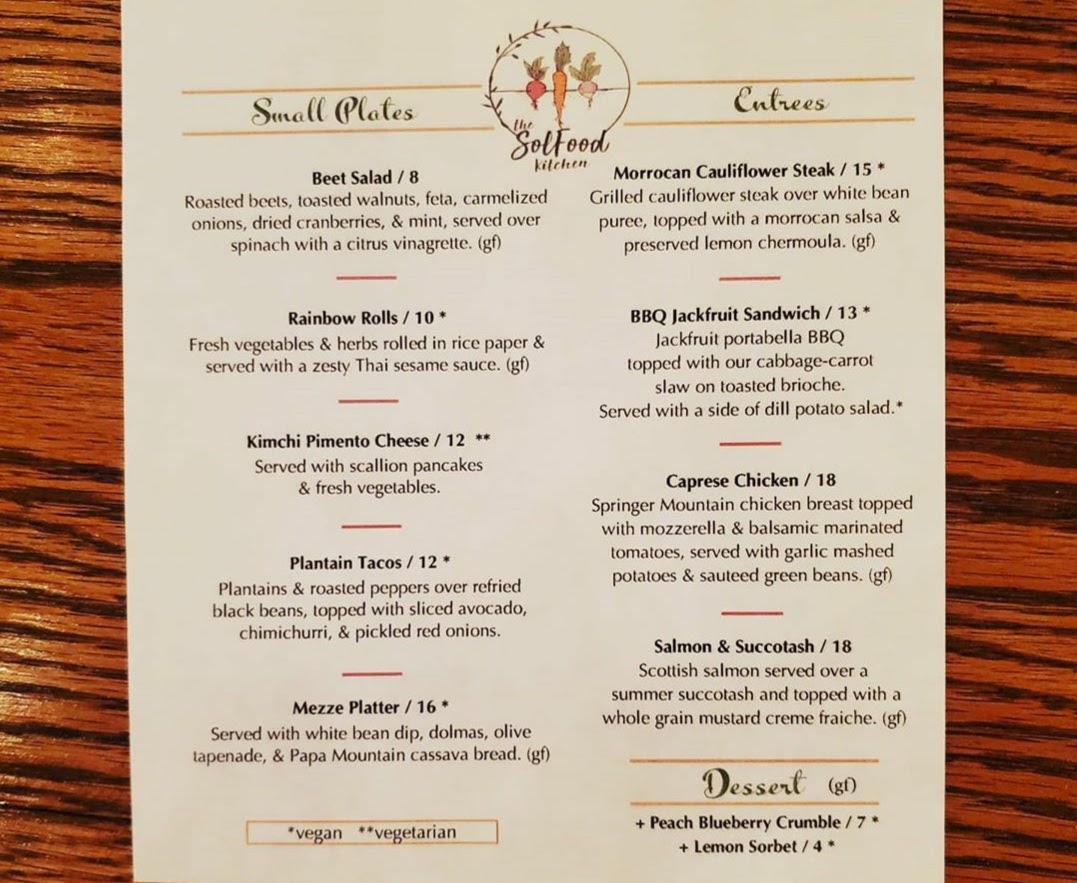 Small Plates
the
SolFood
kitchen
Entrees
Beet Salad / 8
Roasted beets, toasted walnuts, feta, carmelized
onions, dried cranberries, & mint, served over
spinach with a citrus vinagrette. (gf)
Rainbow Rolls / 10 *
Fresh vegetables & herbs rolled in rice paper &
served with a zesty Thai sesame sauce. (gf)
Kimchi Pimento Cheese / 12 **
Served with scallion pancakes
& fresh vegetables.
Plantain Tacos / 12 *
Plantains & roasted peppers over refried
black beans, topped with sliced avocado,
chimichurri, & pickled red onions.
Mezze Platter / 16 *
Served with white bean dip, dolmas, olive
tapenade, & Papa Mountain cassava bread. (gf)
*vegan **vegetarian
Morrocan Cauliflower Steak / 15 *
Grilled cauliflower steak over white bean
puree, topped with a morrocan salsa &
preserved lemon chermoula. (gf)
BBQ Jackfruit Sandwich / 13 *
Jackfruit portabella BBQ
topped with our cabbage-carrot
slaw on toasted brioche.
Served with a side of dill potato salad.*
Caprese Chicken / 18
Springer Mountain chicken breast topped
with mozzerella & balsamic marinated
tomatoes, served with garlic mashed
potatoes & sauteed green beans. (gf)
Salmon & Succotash / 18
Scottish salmon served over a
summer succotash and topped with a
whole grain mustard creme fraiche. (gf)
Dessert (gf)
+ Peach Blueberry Crumble / 7 *
+ Lemon Sorbet / 4 *